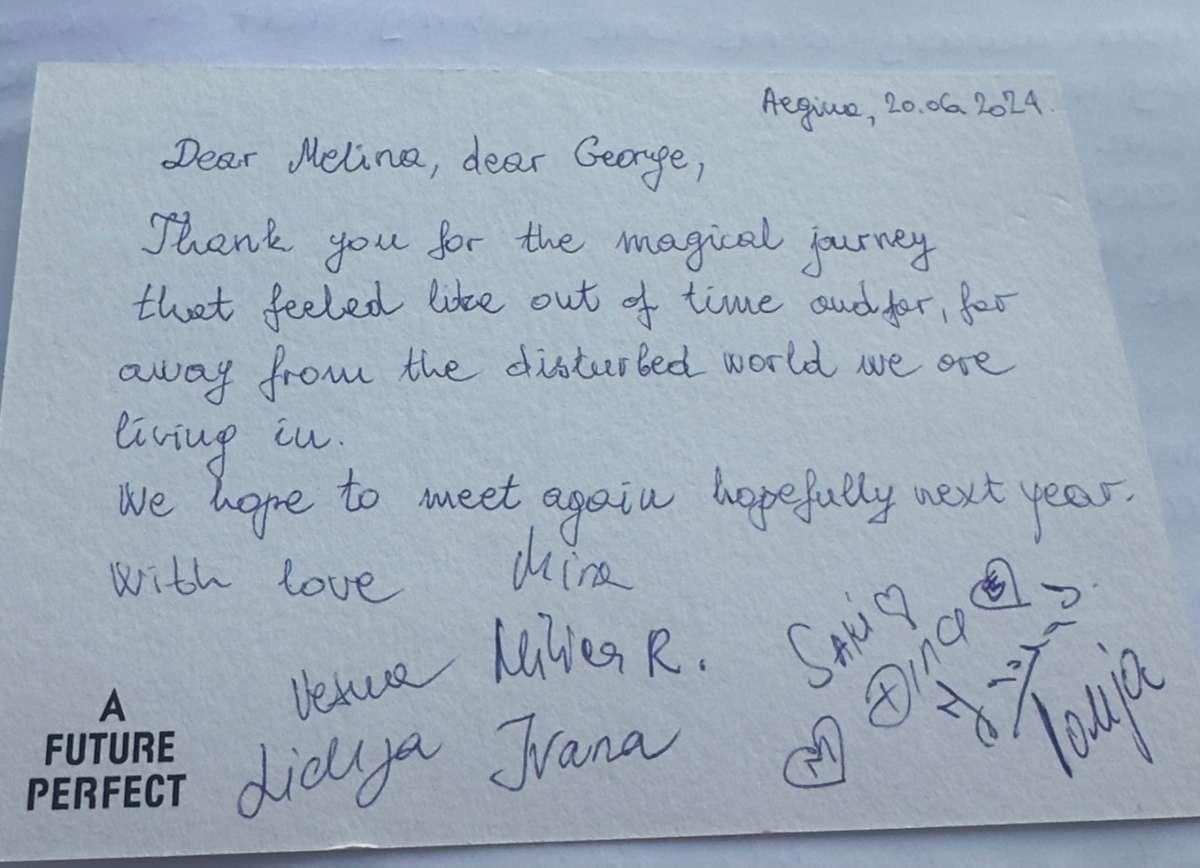 Aegina, 20.06.2024.
Dear Melina, dear George,
Thank you for the magical journey
that feeled like out of time and far, far
away from the disturbed world we are
living in.
We hope to meet again hopefully next year.
With love Mira
Vesna R. SAKI♡
Lidija Ivana Tanja
A
FUTURE
PERFECT